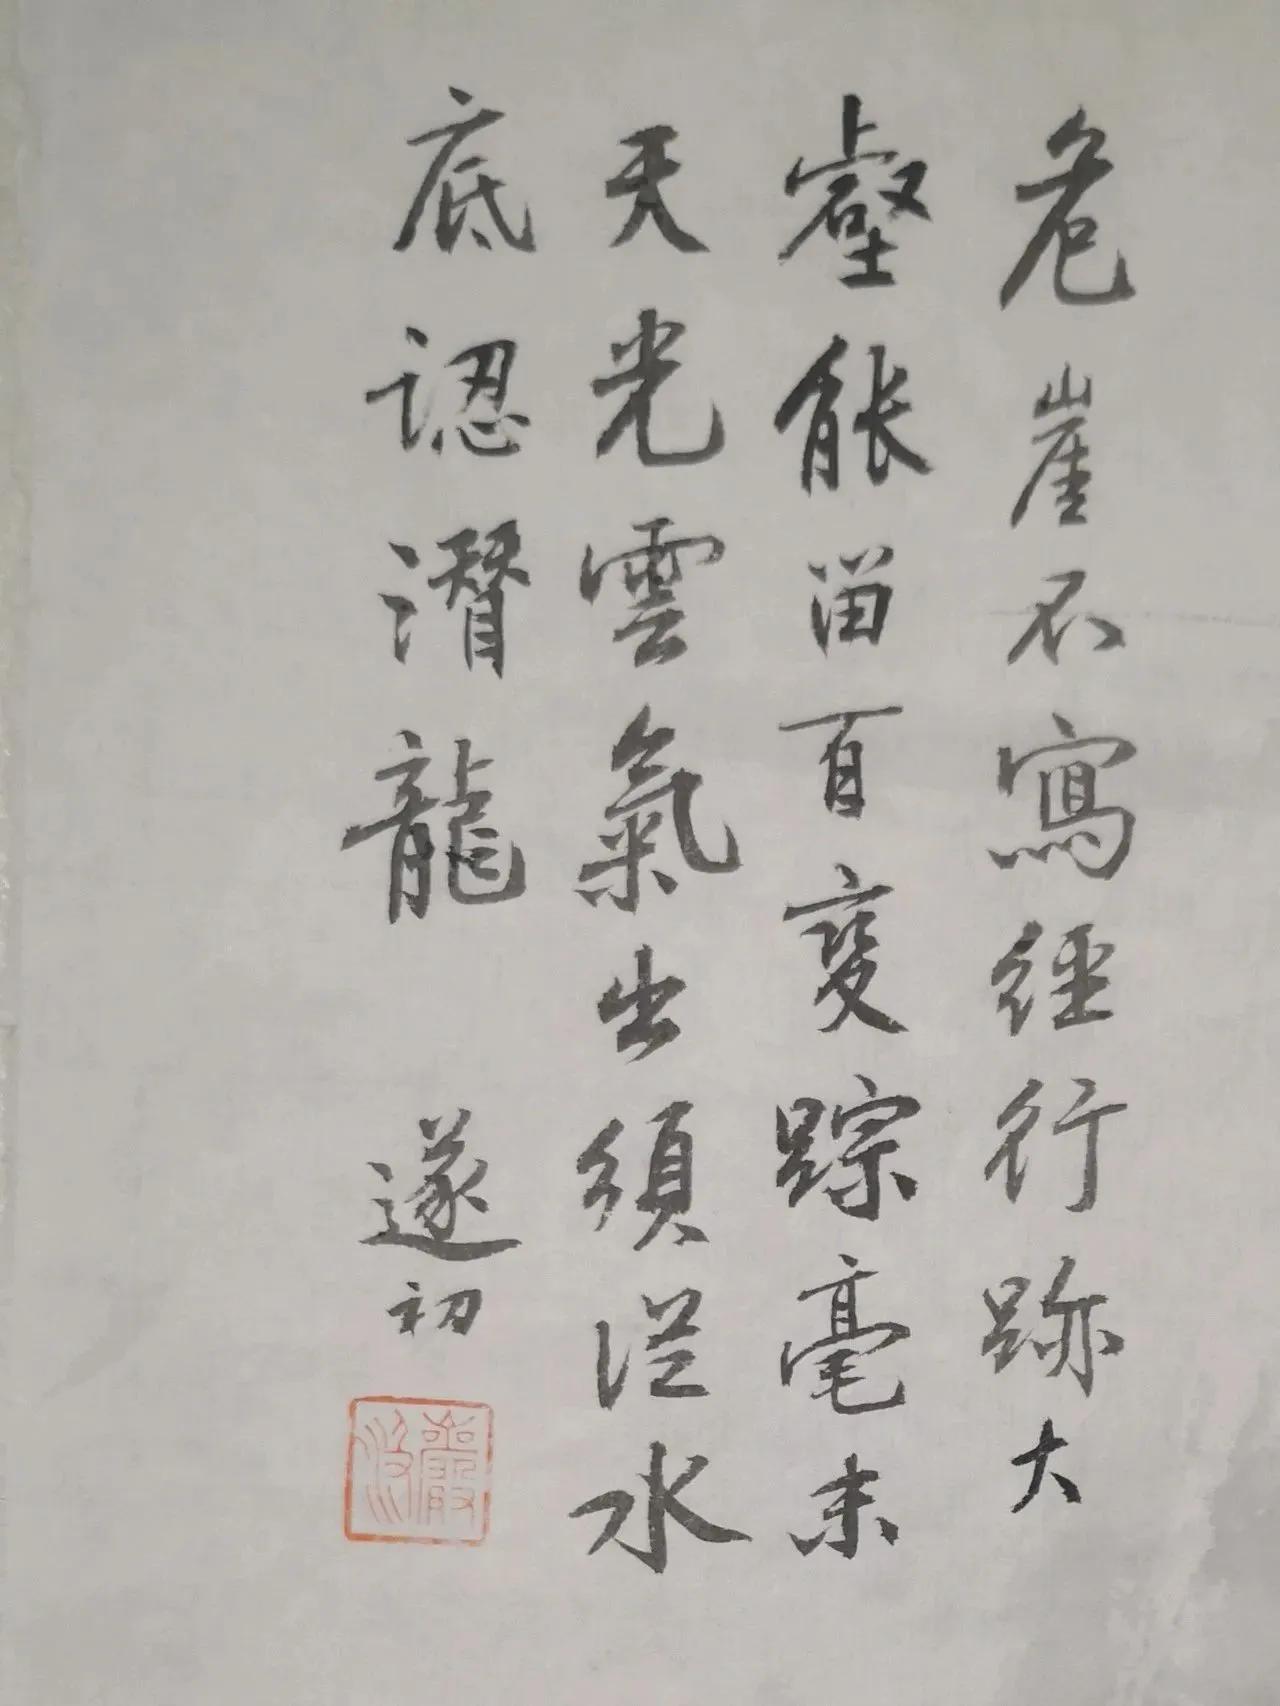 危崖不寫經行跡大
壑能留百變踪毫末
天光雲氣出須從水
底認潛龍 遂初